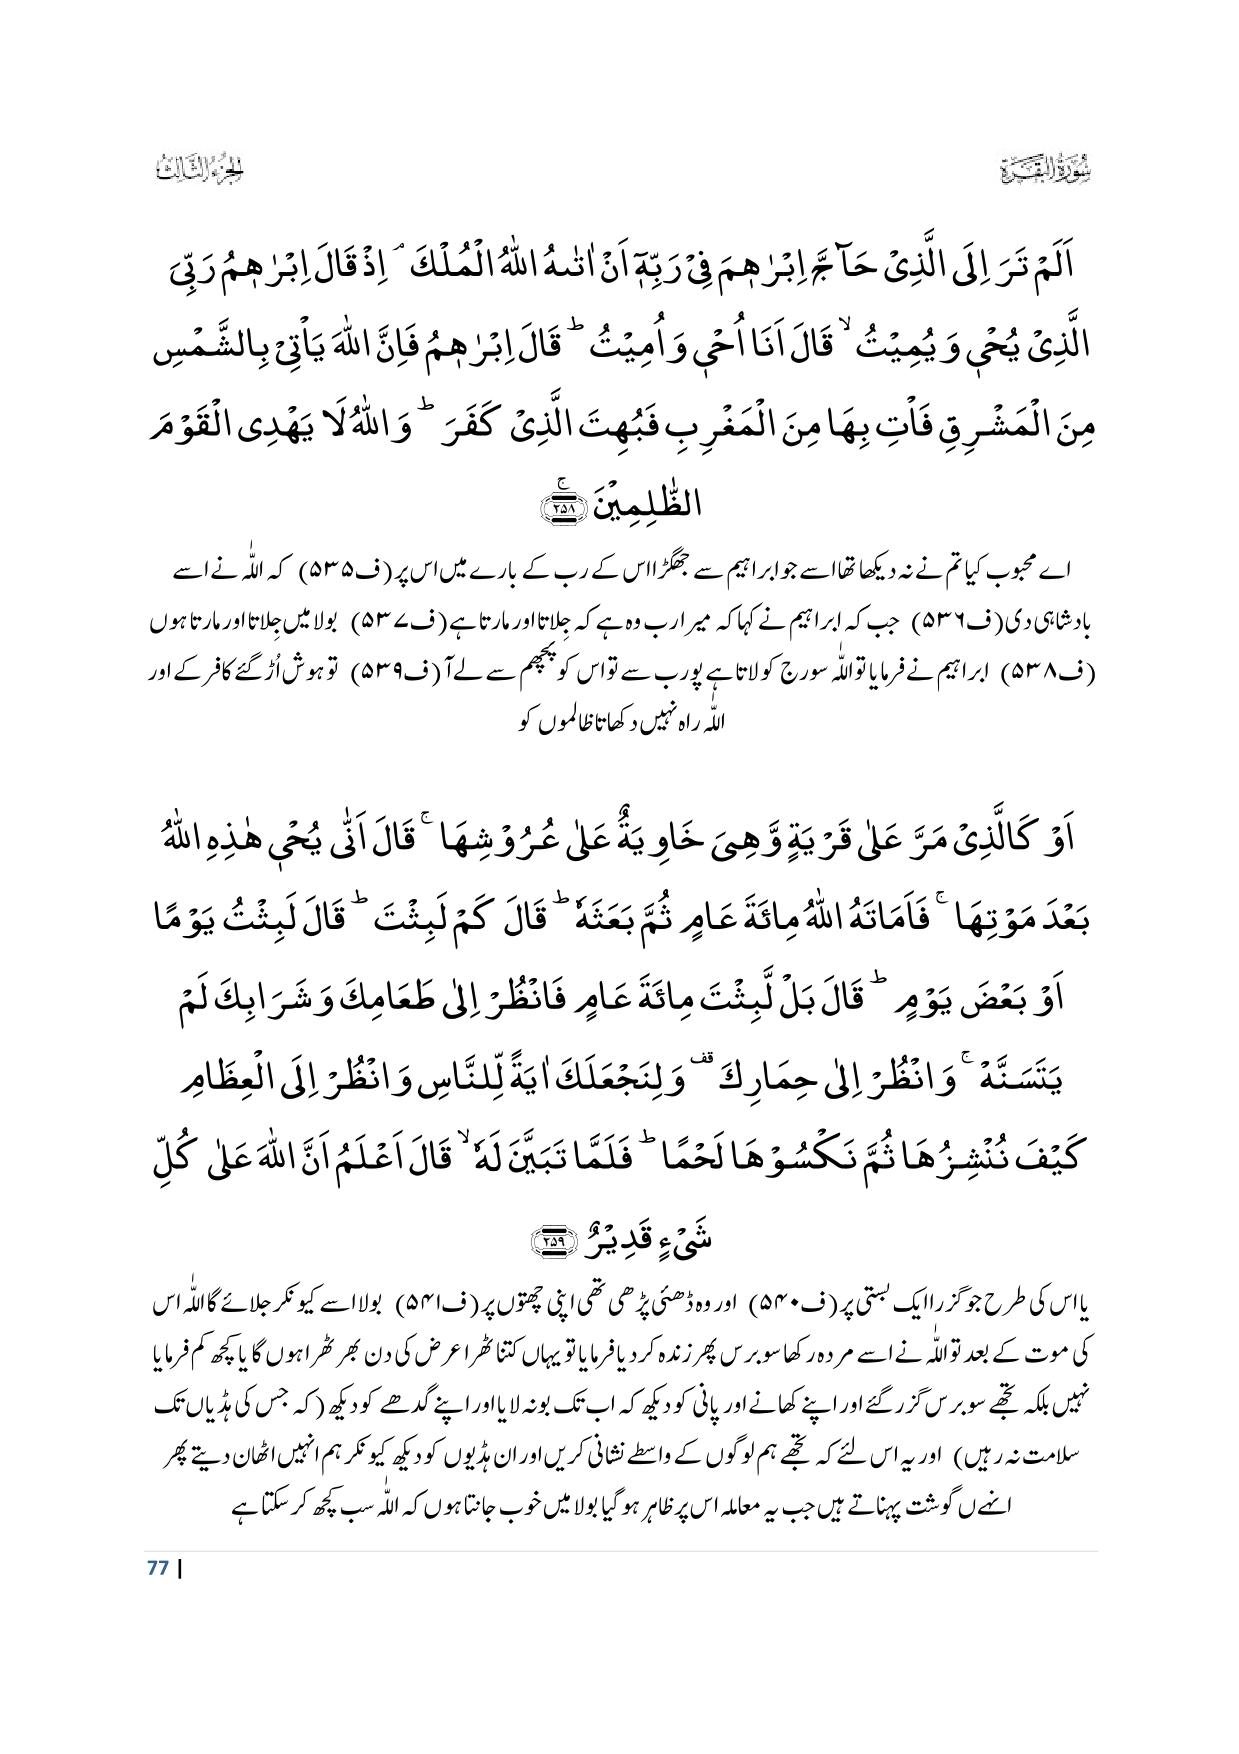 سُوْرَةُ الْبَقَرَة
الجزء الثالث
اَلَمْ تَرَ اِلَى الَّذِیْ حَآجَّ اِبْرٰهٖمَ فِیْ رَبِّهٖۤ اَنْ اٰتٰىهُ اللّٰهُ الْمُلْكَ ۘ اِذْ قَالَ اِبْرٰهٖمُ رَبِّیَ
الَّذِیْ یُحْیٖ وَ یُمِیْتُ ۙ قَالَ اَنَا اُحْیٖ وَ اُمِیْتُ ؕ قَالَ اِبْرٰهٖمُ فَاِنَّ اللّٰهَ یَاْتِیْ بِالشَّمْسِ
مِنَ الْمَشْرِقِ فَاْتِ بِهَا مِنَ الْمَغْرِبِ فَبُهِتَ الَّذِیْ كَفَرَ ؕ وَ اللّٰهُ لَا یَهْدِی الْقَوْمَ
الظّٰلِمِیْنَ ۚ﴿۲۵۸﴾
اے محبوب کیا تم نے نہ دیکھا تھا اسے جو ابراہیم سے جھگڑا اس کے رب کے بارے میں اس پر (ف۵۳۵) کہ اللّٰہ نے اسے
بادشاہی دی (ف۵۳۶) جب کہ ابراہیم نے کہا کہ میرا رب وہ ہے کہ جِلاتا اور مارتا ہے (ف۵۳۷) بولا میں جِلاتا اور مارتا ہوں
(ف۵۳۸) ابراہیم نے فرمایا تو اللّٰہ سورج کو لاتا ہے پورب سے تو اس کو پچھم سے لے آ (ف۵۳۹) تو ہوش اُڑ گئے کافر کے اور
اللّٰہ راہ نہیں دکھاتا ظالموں کو
اَوْ كَالَّذِیْ مَرَّ عَلٰى قَرْیَةٍ وَّ هِیَ خَاوِیَةٌ عَلٰى عُرُوْشِهَا ۚ قَالَ اَنّٰى یُحْیٖ هٰذِهِ اللّٰهُ
بَعْدَ مَوْتِهَا ۚ فَاَمَاتَهُ اللّٰهُ مِائَةَ عَامٍ ثُمَّ بَعَثَهٗ ؕ قَالَ كَمْ لَبِثْتَ ؕ قَالَ لَبِثْتُ یَوْمًا
اَوْ بَعْضَ یَوْمٍ ؕ قَالَ بَلْ لَّبِثْتَ مِائَةَ عَامٍ فَانْظُرْ اِلٰى طَعَامِكَ وَ شَرَابِكَ لَمْ
یَتَسَنَّهْ ۚ وَ انْظُرْ اِلٰى حِمَارِكَ ۫ وَ لِنَجْعَلَكَ اٰیَةً لِّلنَّاسِ وَ انْظُرْ اِلَى الْعِظَامِ
كَیْفَ نُنْشِزُهَا ثُمَّ نَكْسُوْهَا لَحْمًا ؕ فَلَمَّا تَبَیَّنَ لَهٗ ۙ قَالَ اَعْلَمُ اَنَّ اللّٰهَ عَلٰى كُلِّ
شَیْءٍ قَدِیْرٌ ﴿۲۵۹﴾
یا اس کی طرح جو گزرا ایک بستی پر (ف۵۴۰) اور وہ ڈھئی پڑھی تھی اپنی چھتوں پر (ف۵۴۱) بولا اسے کیونکر جلائے گا اللّٰہ اس
کی موت کے بعد تو اللّٰہ نے اسے مردہ رکھا سو برس پھر زندہ کر دیا فرمایا تو یہاں کتنا ٹھرا عرض کی دن بھر ٹھرا ہوں گا یا کچھ کم فرمایا
نہیں بلکہ تجھے سو برس گزر گئے اور اپنے کھانے اور پانی کو دیکھ کہ اب تک بو نہ لایا اور اپنے گدھے کو دیکھ (کہ جس کی ہڈیاں تک
سلامت نہ رہیں) اور یہ اس لئے کہ تجھے ہم لوگوں کے واسطے نشانی کریں اور ان ہڈیوں کو دیکھ کیونکر ہم انہیں اٹھان دیتے پھر
انہےں گوشت پہناتے ہیں جب یہ معاملہ اس پر ظاہر ہو گیا بولا میں خوب جانتا ہوں کہ اللّٰہ سب کچھ کر سکتا ہے
77 |